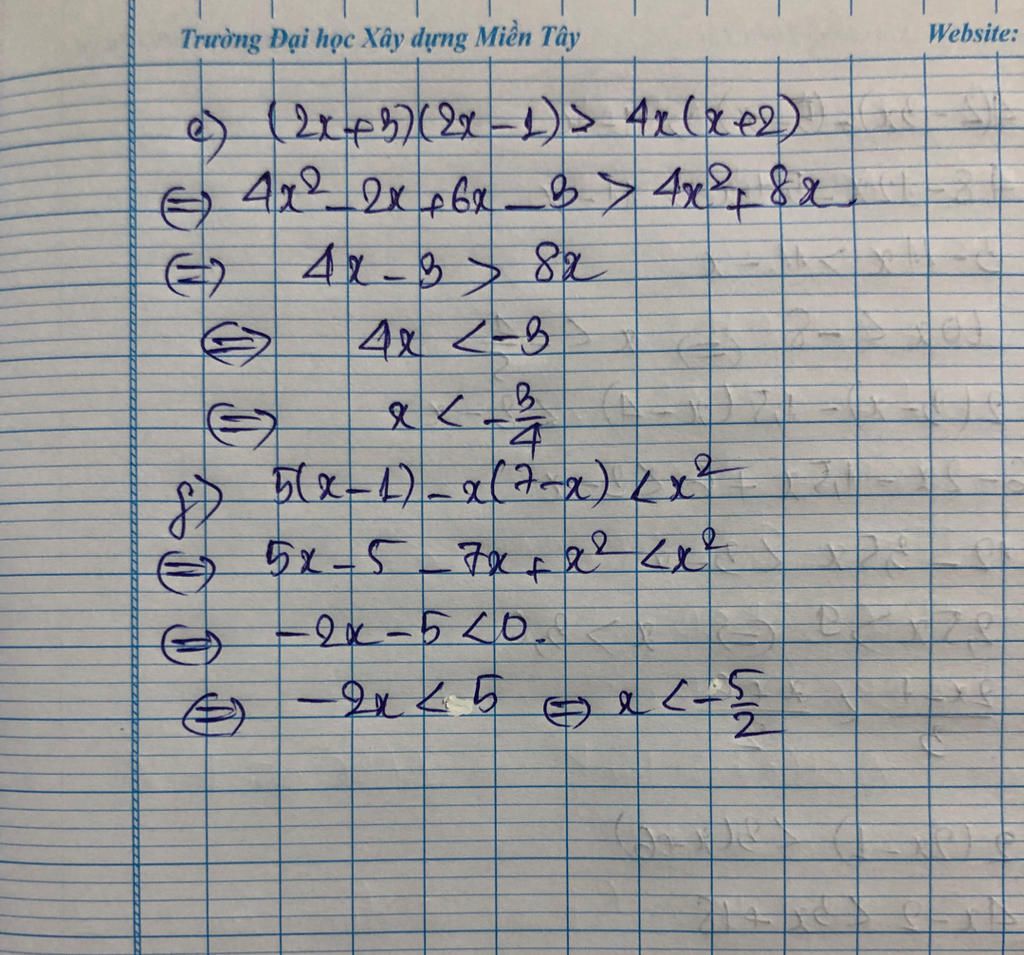 Trường Đại học Xây dựng Miền Tây Website:
e) (2x+3)(2x-1) > 4x(x+2)
⇔ 4x² - 2x + 6x - 3 > 4x² + 8x
⇔ 4x - 3 > 8x
⇔ 4x < -3
⇔ x < -3/4
f) 5(x-1) - x(7-x) < x²
⇔ 5x - 5 - 7x + x² < x²
⇔ -2x - 5 < 0.
⇔ -2x < 5 ⇔ x < -5/2